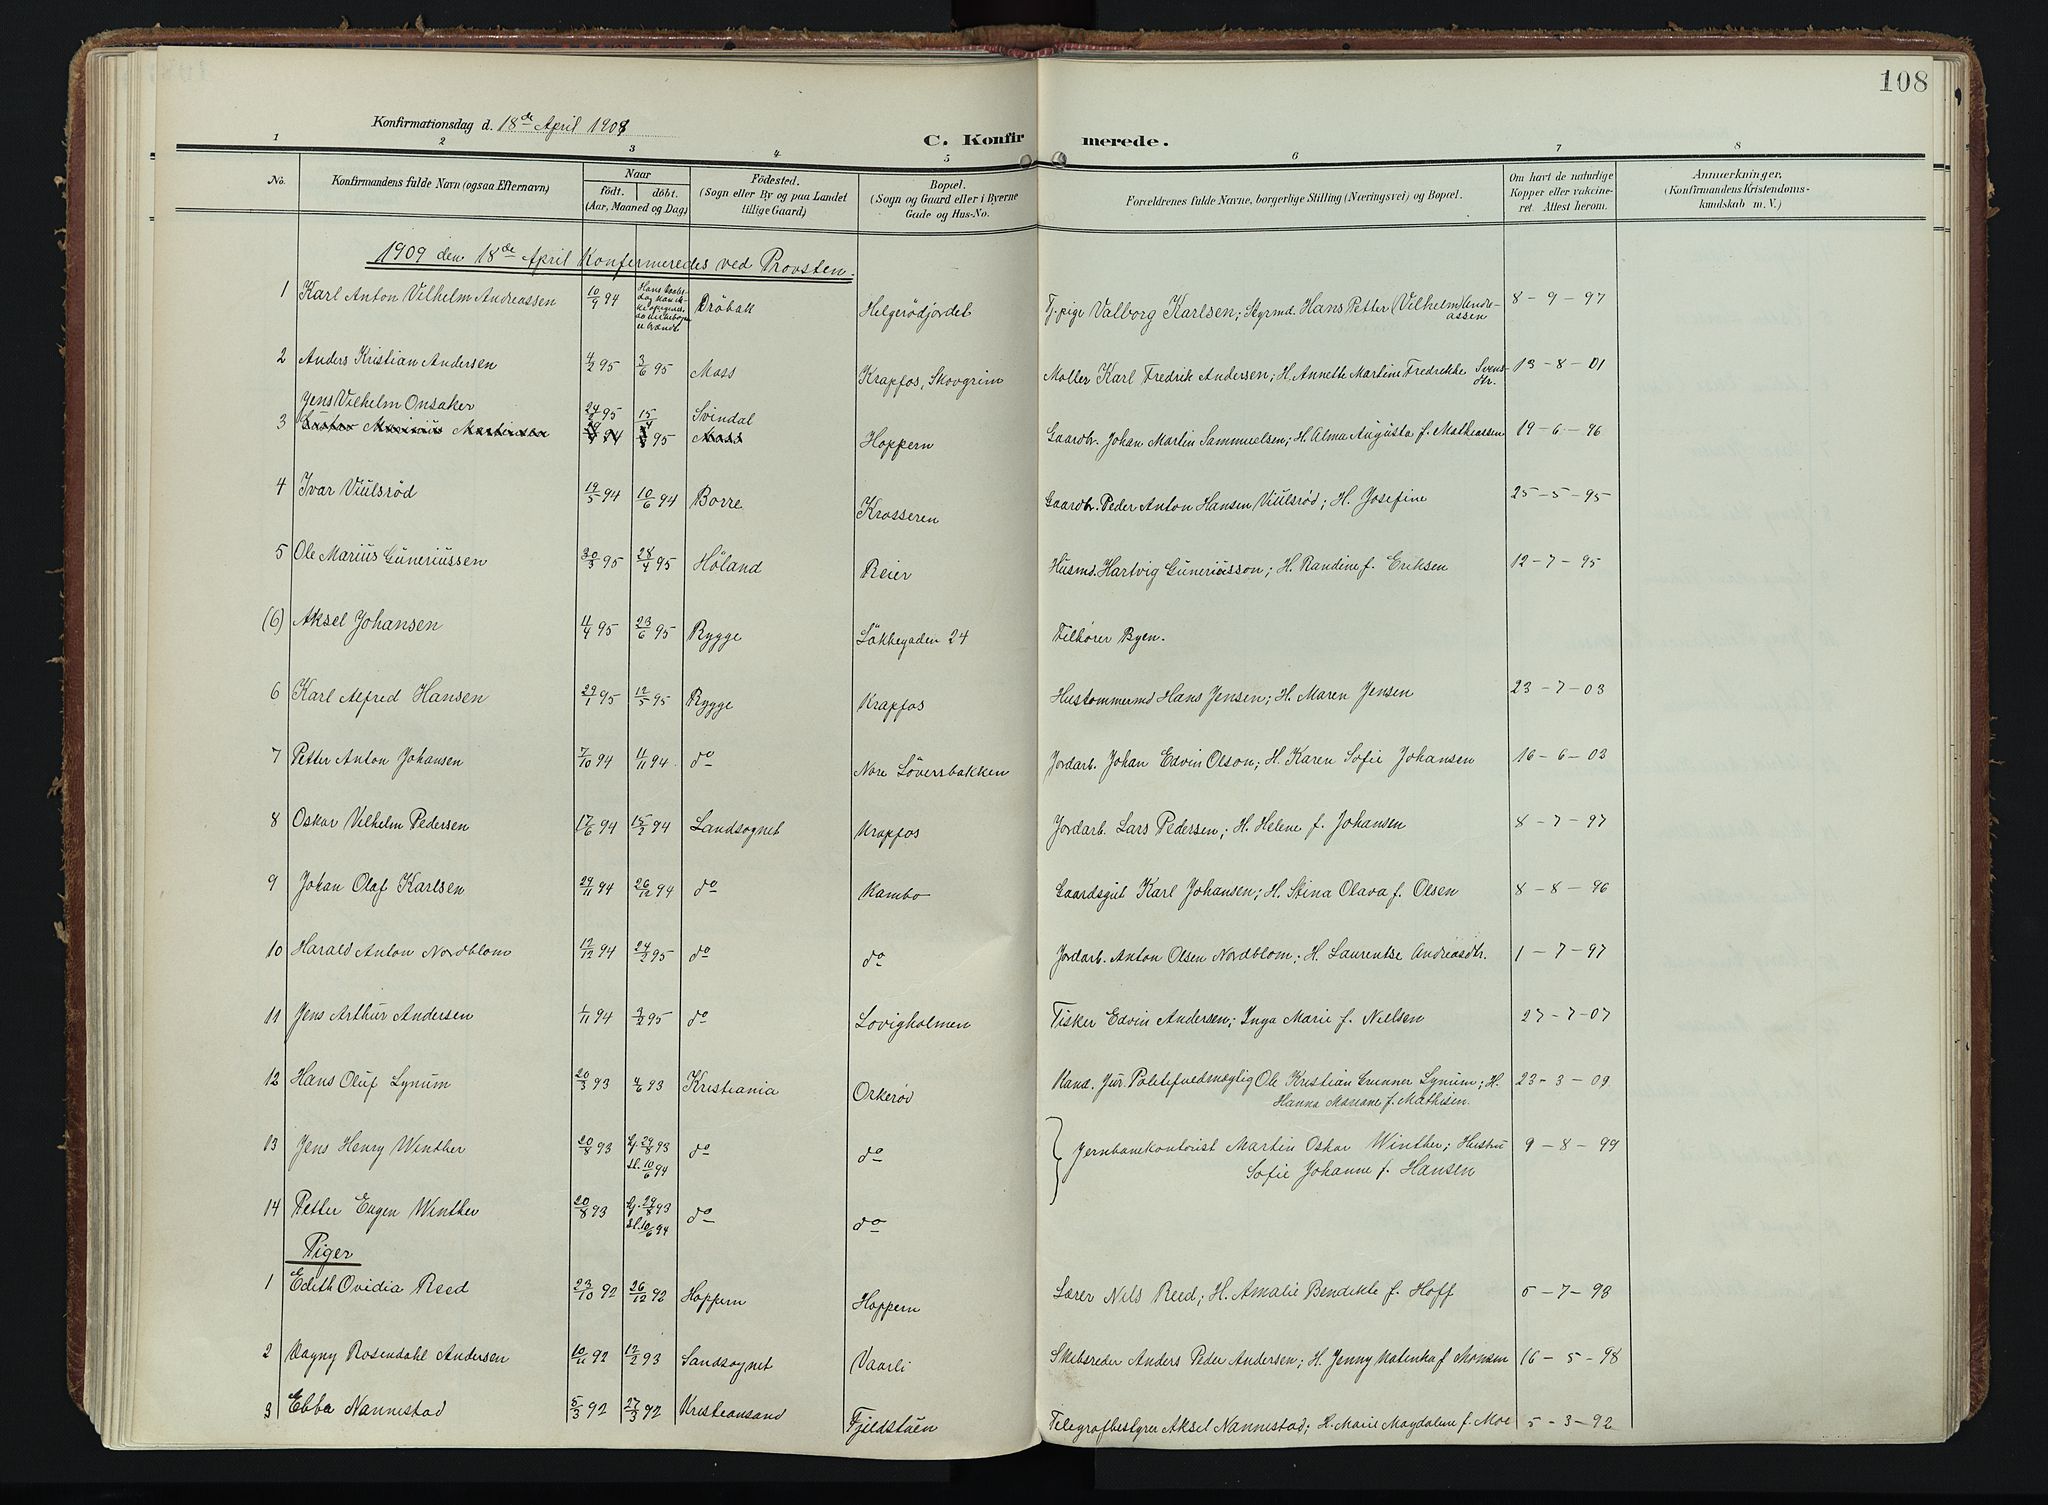 108
Konfirmationsdag d. 18de April 1909
C. Konfirmerede.
1 2 3 4 5 6 7 8
No. Konfirmandens fulde Navn (ogsaa Efternavn) Naar födt. döbt. (Aar, Maaned og Dag) Födested. (Sogn eller By og paa Landet tillige Gaard) Bopæl. (Sogn og Gaard eller i Byerne Gade og Hus-No. Forældrenes fulde Navne, borgerlige Stilling (Næringsvei) og Bopæl. Om havt de naturlige Kopper eller vaccineret. Attest herom. Anmærkninger, (Konfirmandens Kristendomskundskab m. V.)
1909 den 18de April Konfirmeredes ved Provsten.
1 Karl Anton Vilhelm Andreassen 10/9 94 Hans Daabsdag kan ikke Dröbak Helgerödjordet Tj.pige Valborg Karlsen; Styrmd. Hans Petter (Vilhelm) Andreassen 8-9-97
2 Anders Kristian Andersen 4/2 95 3/6 95 Moss Krapfos, Skovgrim Møller Karl Fredrik Andersen; H. Annette Martine Fredrikke Svensdtr. 13-8-01
Jens Vilhelm Onsaker 24/2 95 15/4 Svindal
3 Gustav Marinius Martinsen 94 95 Moss Hoppern Gaardbr. Johan Martin Sammuelsen; H. Alma Augusta f. Matheassen 19-6-96
4 Ivar Viulsrød 19/5 94 10/6 94 Borre Krosseren Gaardbr. Peder Anton Hansen Viulsrød; H. Josefine 25-5-95
5 Ole Marius Guneriussen 30/3 95 28/4 95 Høland Reier Husmd. Hartvig Guneriusson; H. Randine f. Eriksen 12-7-95
(6) Aksel Johansen 11/4 95 23/6 95 Rygge Løkkegaden 24 Tilhører Byen.
6 Karl Alfred Hansen 29/1 95 12/5 95 Rygge Krapfos Hustømmermd Hans Jensen; H. Maren Jensen 23-7-03
7 Petter Anton Johansen 7/10 94 11/11 94 do Nore Löversbakken Jordarb. Johan Edvin Olson; H. Karen Sofie Johansen 16-6-03
8 Oskar Vilhelm Pedersen 17/6 94 15/2 94 Landsognet Krapfos Jordarb. Lars Pedersen; H. Helene f. Johansen 8-7-97
9 Johan Olaf Karlsen 29/11 94 26/12 94 do Kambo Gaardsgut Karl Johansen; H. Stina Olava f. Olsen 8-8-96
10 Harald Anton Nordblom 17/12 94 24/2 95 do do Jordarb. Anton Olsen Nordblom; H. Laurentse Andreasdtr. 1-7-97
11 Jens Arthur Andersen 1/11 94 3/2 95 do Lovigholmen Fisker Edvin Andersen; Inga Marie f. Nielsen 27-7-07
12 Hans Oluf Lynum 20/3 93 4/6 93 Kristiania Orkerød Kand. Jur. Politifuldmægtig Ole Kristian Grunner Lynum; H. Hanna Mariane f. Mathisen. 23-3-09
13 Jens Henry Winther 20/8 93 Hj. 29/8 93 St. 10/6 94 do do Jernbanekontorist Martin Oskar Winther; Hustru Sofie Johanne f. Hansen 9-8-99
14 Petter Eugen Winther 20/8 93 Hj. 29/8 93 St. 10/6 94 do do
Piger
1 Edith Ovidia Reed 23/10 92 26/12 92 Hoppern Hoppern Lærer Nils Reed; H. Amalie Bendikte f. Hoff 5-7-93
2 Vagny Rosendahl Andersen 10/11 92 12/2 93 Landsognet Vaarli Skibsreder Anders Peder Andersen; H. Jenny Matenka f Monsen 16-5-98
3 Ebba Nannestad 5/3 92 27/3 92 Kristiansand Fjeldstuen Telegrafbestyrer Aksel Nannestad; H. Marie Magdalene f. Moe 5-3-92